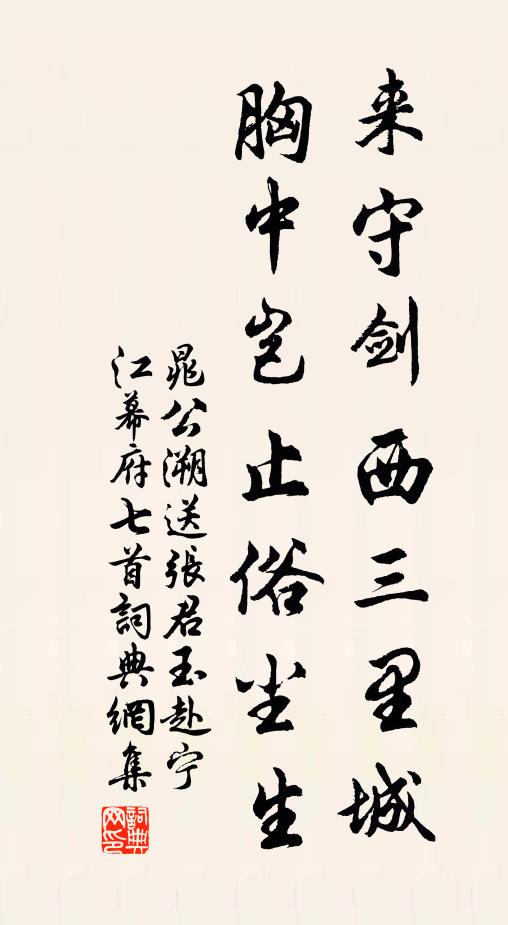 来守剑西三里城
胸中岂止俗尘生
晁公溯送張君玉赴宁
江幕府七首詞典網集
詞典網印